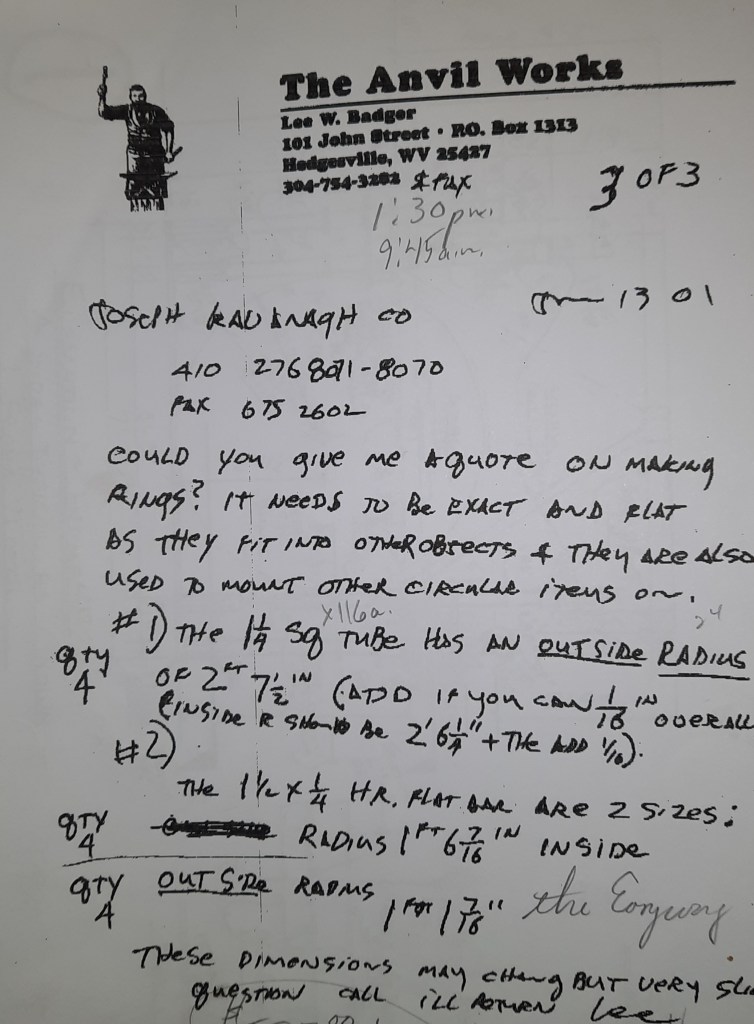 The Anvil Works
Lee W. Badger
101 John Street • P.O. Box 1313
Hedgesville, WV 25427
304-754-3282 & FAX
3 OF 3
1:30 pm.
9:45 a.m.
13 01
JOSEPH KAVANAGH CO
410 276 8071-8070
FAX 675 2602
COULD YOU GIVE ME A QUOTE ON MAKING
RINGS? IT NEEDS TO BE EXACT AND FLAT
AS THEY FIT INTO OTHER OBJECTS & THEY ARE ALSO
USED TO MOUNT OTHER CIRCULAR ITEMS ON.
x 11 Ga.
#1) THE 1 1/4 SQ TUBE HAS AN OUTSIDE RADIUS
QTY 4 OF 2 FT 7 1/2 IN (ADD IF YOU CAN 1/16 IN OVERALL
(INSIDE R SHOULD BE 2' 6 1/4" + THE ADD 1/16).
#2)
THE 1 1/2 x 1/4 HR. FLAT BAR ARE 2 SIZES:
QTY 4 RADIUS 1 FT 6 7/16 IN INSIDE
QTY 4 OUTSIDE RADIUS 1 FT 1 7/16" the
THESE DIMENSIONS MAY CHANG BUT VERY
QUESTION CALL I'LL RETURN Lee